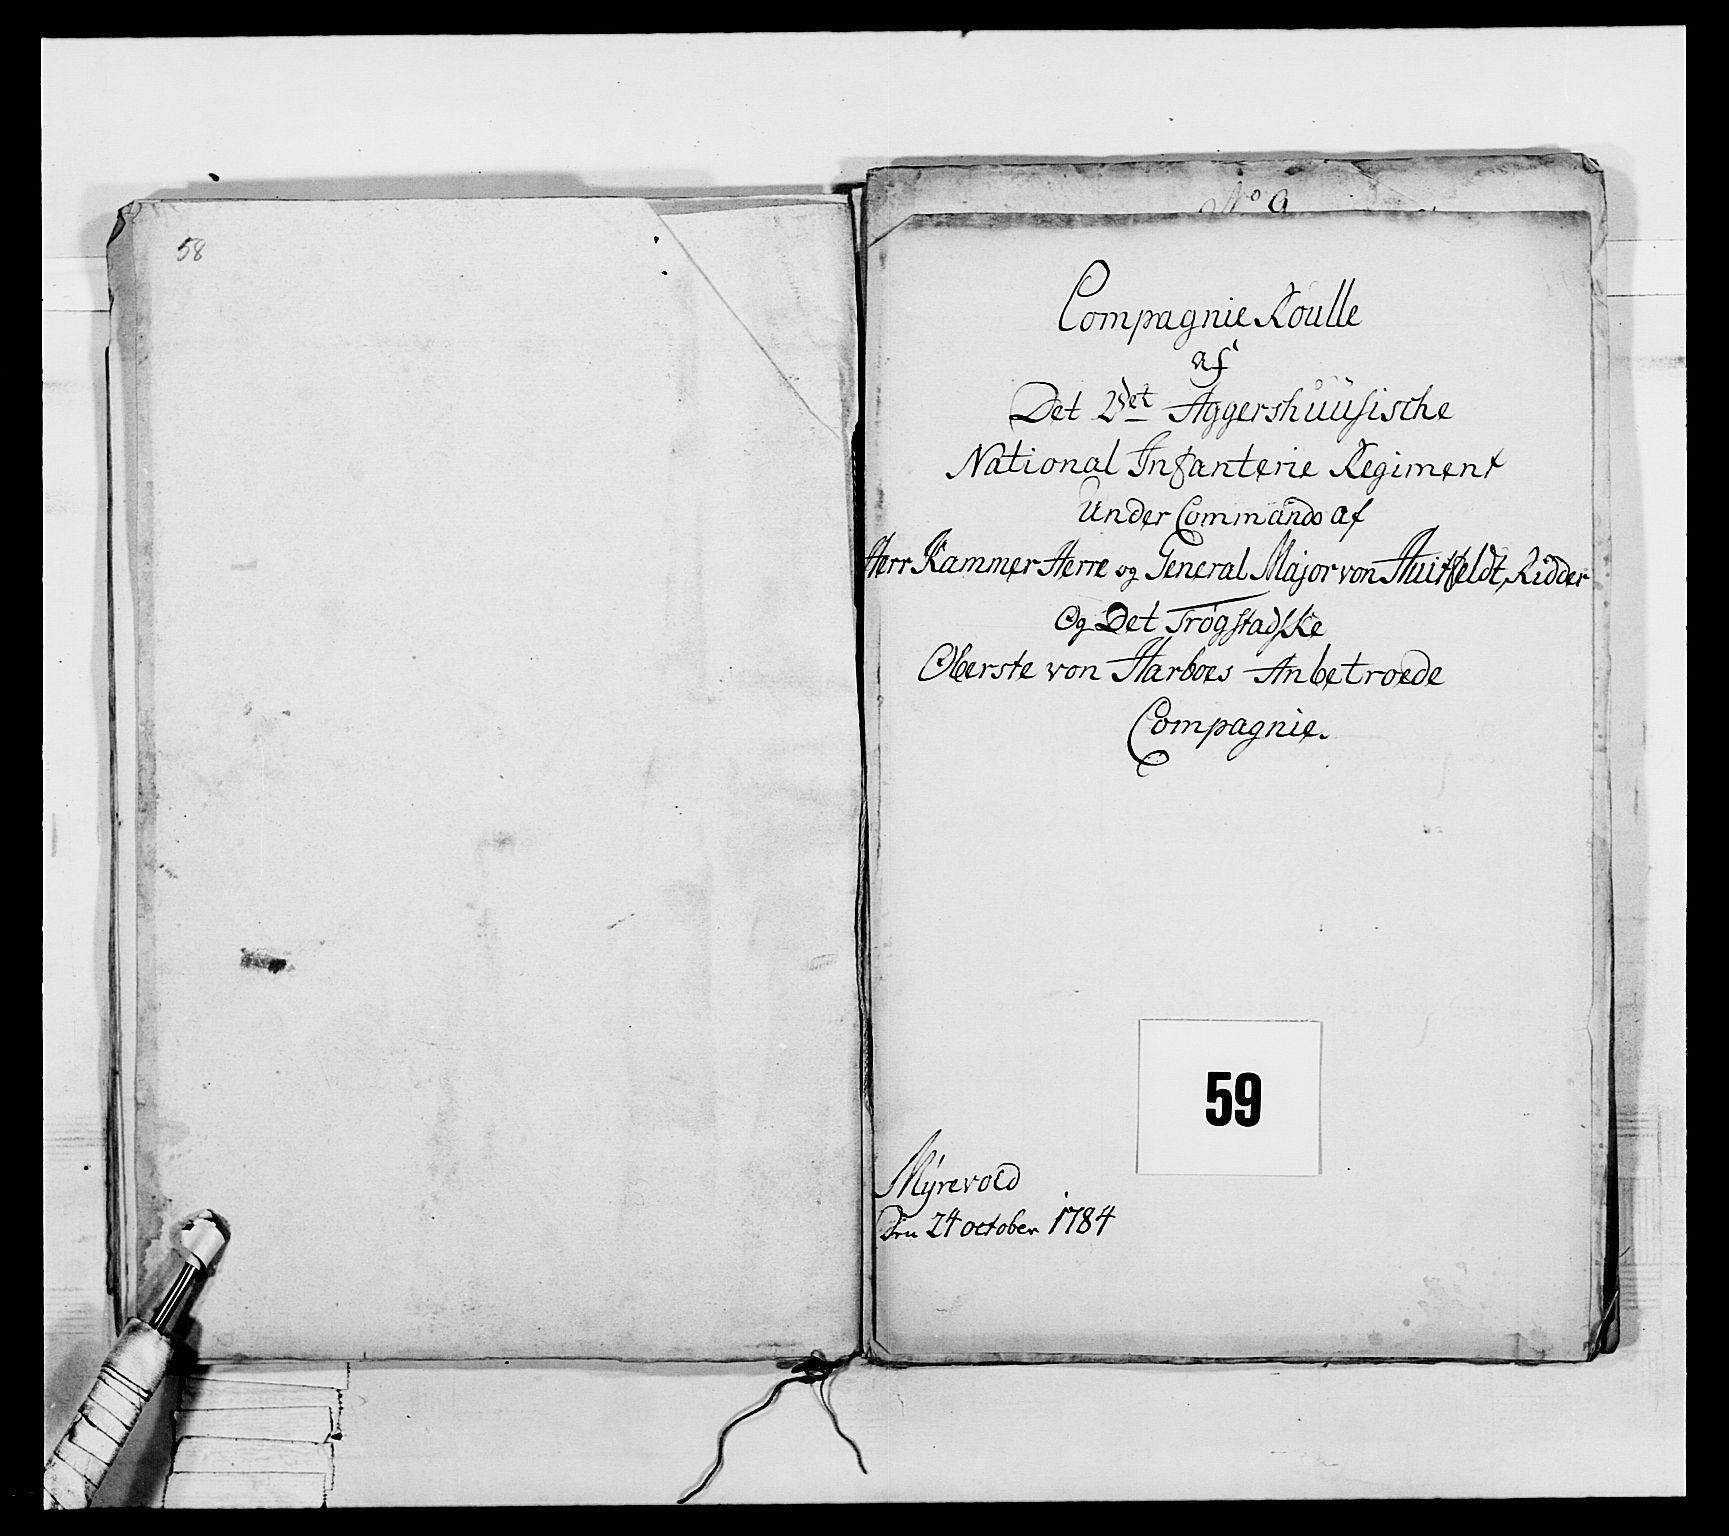 58
No 9
Compagnie Roulle
af
Det 2det Aggershuusische
National Infanterie Regiment
Under Commando af
Herr Kammer Herre og General Major von Huitfeldt, Ridder
Og Det Trøgstadske
Oberste von Harboes Anbetroede
Compagnie.
59
Myrevold
Den 24 october 1784